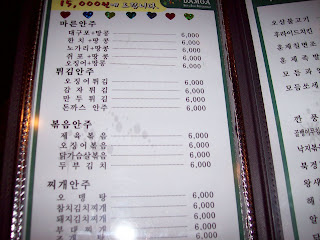 15,000원에 드립니다.
DAMOA
마른안주
대구포+땅콩 6,000
한 치+땅콩 6,000
노가리+땅콩 6,000
쥐 포+땅콩 6,000
오징어+땅콩 6,000
튀김안주
오징어튀김 6,000
감 자 튀 김 6,000
만 두 튀 김 6,000
돈까스 안주 6,000
볶음안주
제 육 볶 음 6,000
오징어볶음 6,000
닭가슴살볶음 6,000
두 부 김 치 6,000
찌개안주
오 뎅 탕 6,000
참치김치찌개 6,000
돼지김치찌개 6,000
부 대 찌 개 6,000
6,000
오삼불고기
후라이드치킨
훈제칭변조
훈제
모듬과
모듬소세
깐 풍
골뱅이무침
낙지볶
북경
왕새
해